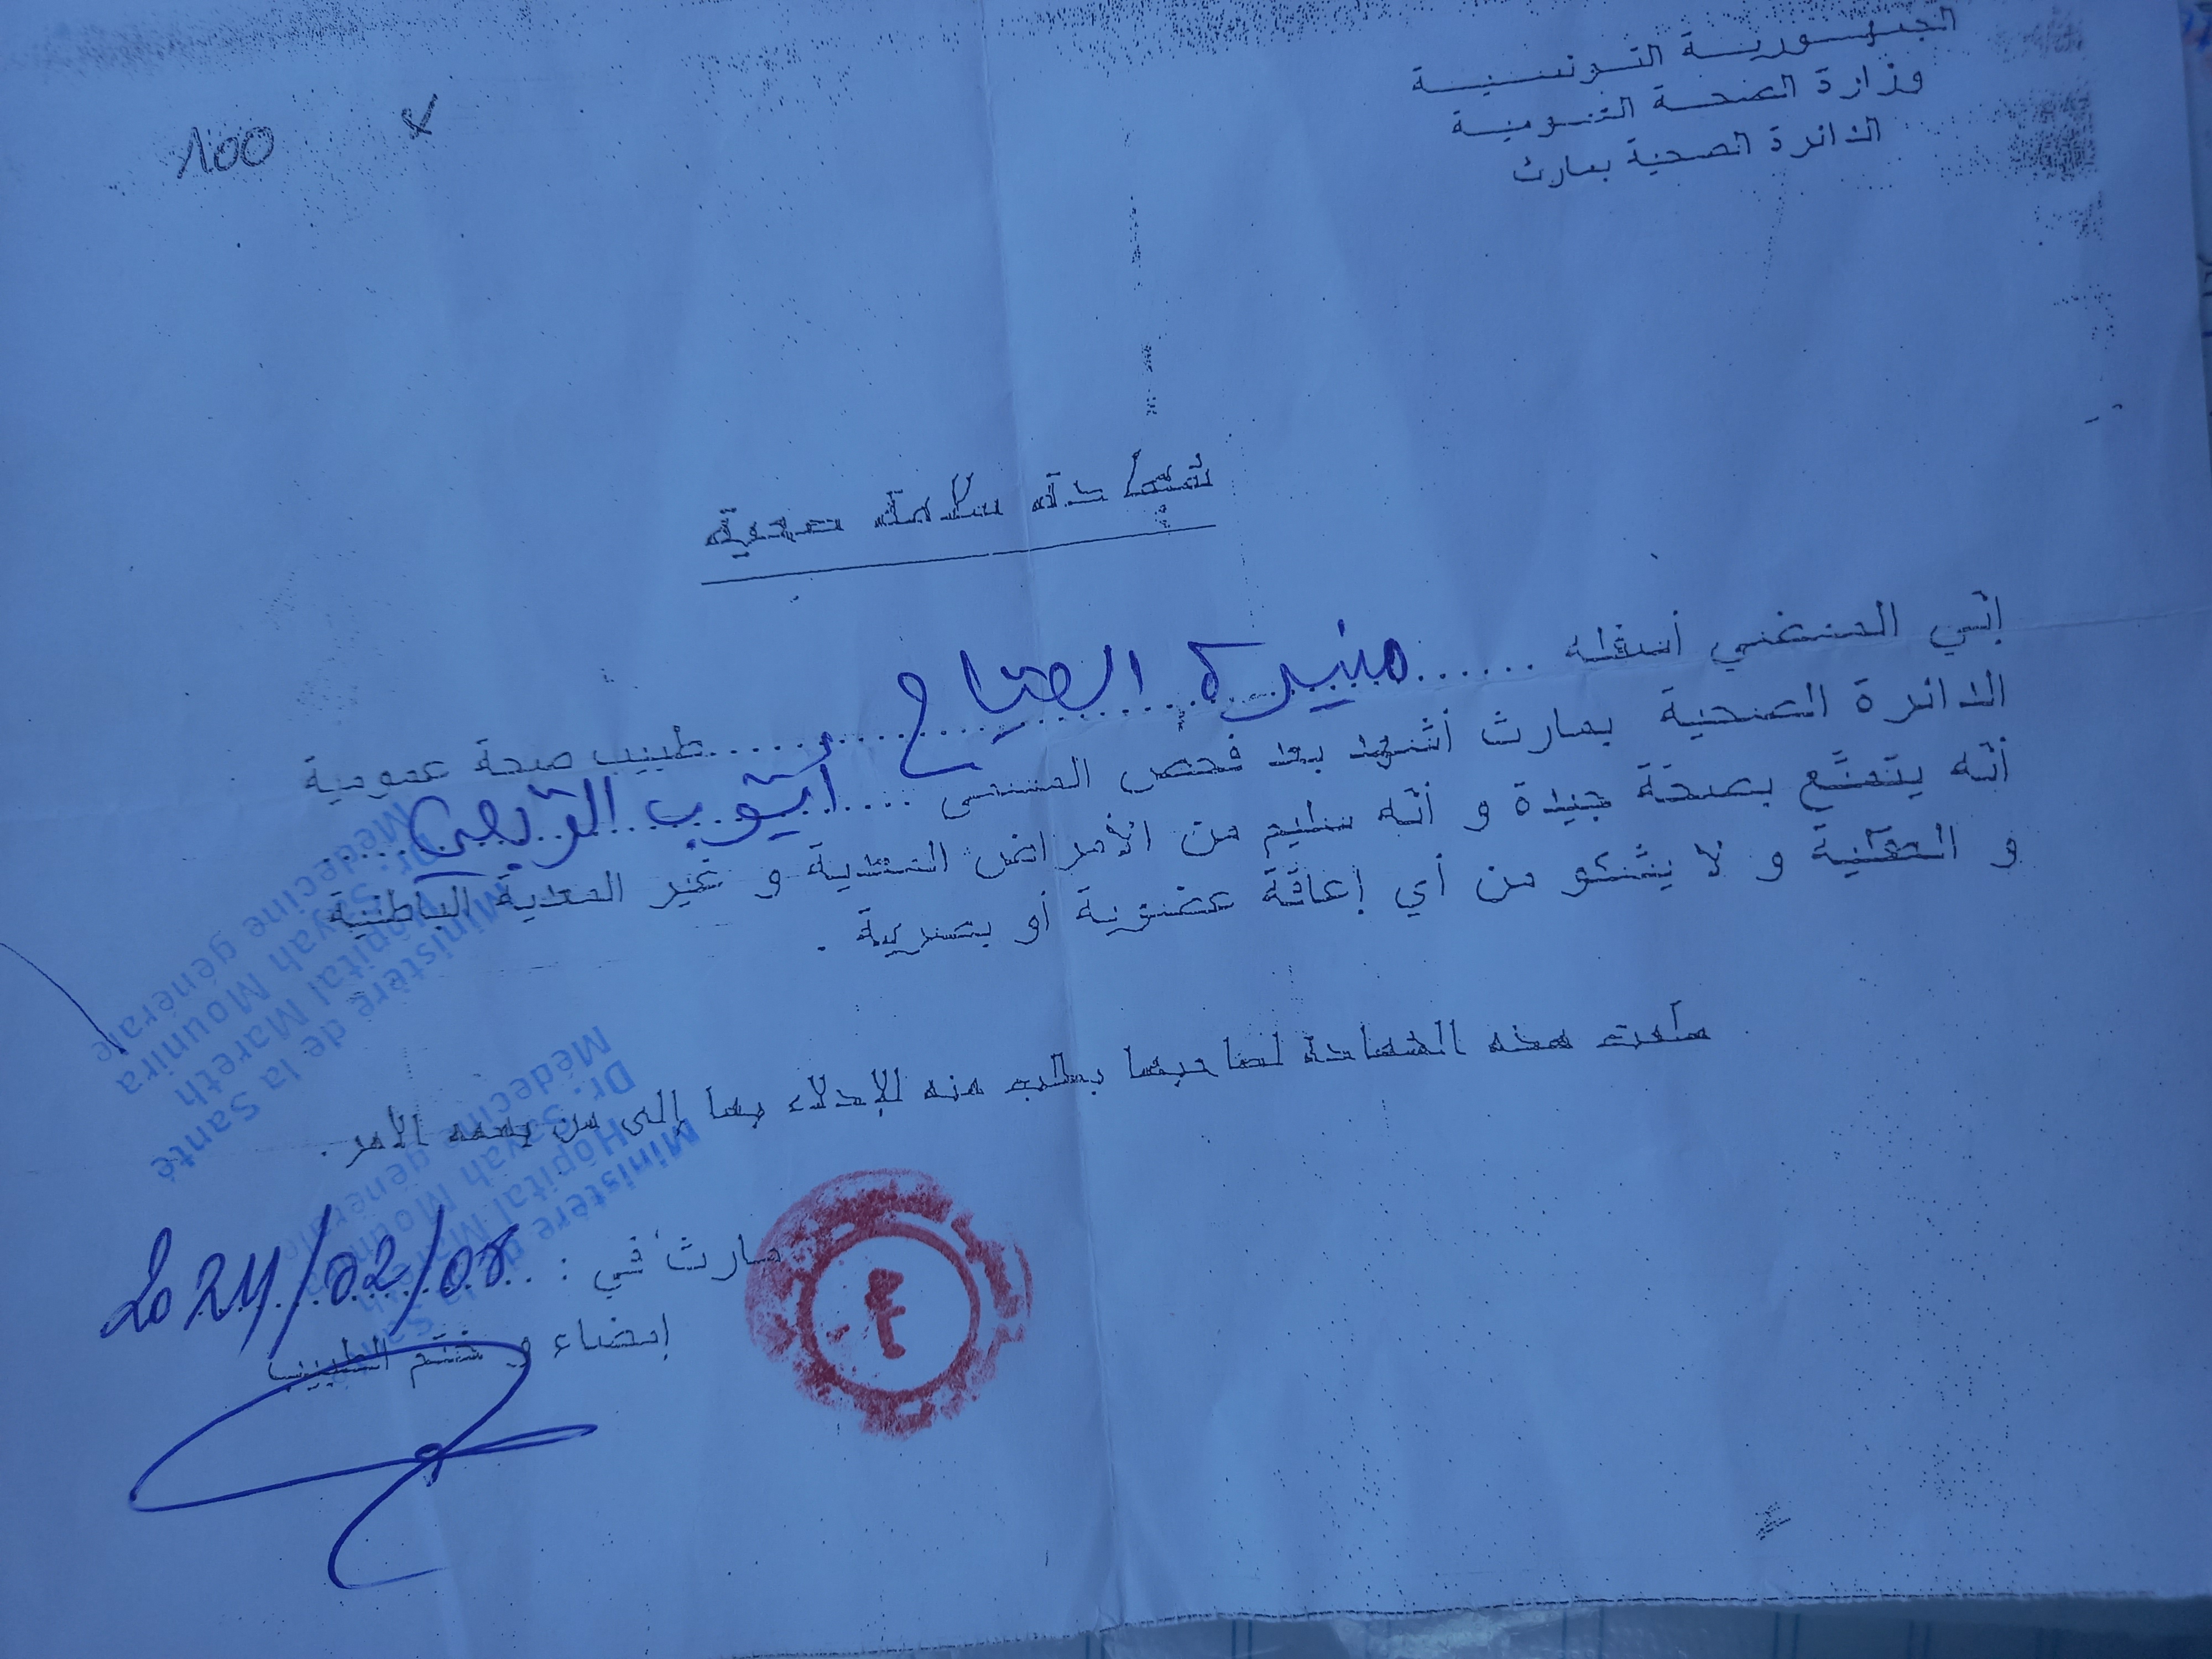 الجمهورية التونسية
وزارة الصحة العمومية
الدائرة الصحية بمارث
100 x
شهادة سلامة صحية
إنّي الممضي أسفله ...... منيرة الصيّاح ...... طبيب صحة عمومية
الدائرة الصحية بمارث أشهد بعد فحص المسمى .... أيّوب الرّبعي ....
أنّه يتمتّع بصحّة جيدة و أنّه سليم من الأمراض المعدية و غير المعدية الباطنية
و العقلية و لا يشكو من أي إعاقة عضوية أو بصرية .
سلمت هذه الشهادة لصاحبها بطلب منه للإدلاء بها إلى من يهمه الأمر .
مارث في : 2024/02/08
إمضاء و ختم الطبيب
Ministère de la Santé
Hôpital Mareth
Dr. Sayah Mounira
Médecine générale
Ministère de la Santé
Hôpital Mareth
Dr. Sayah Mounira
Médecine générale